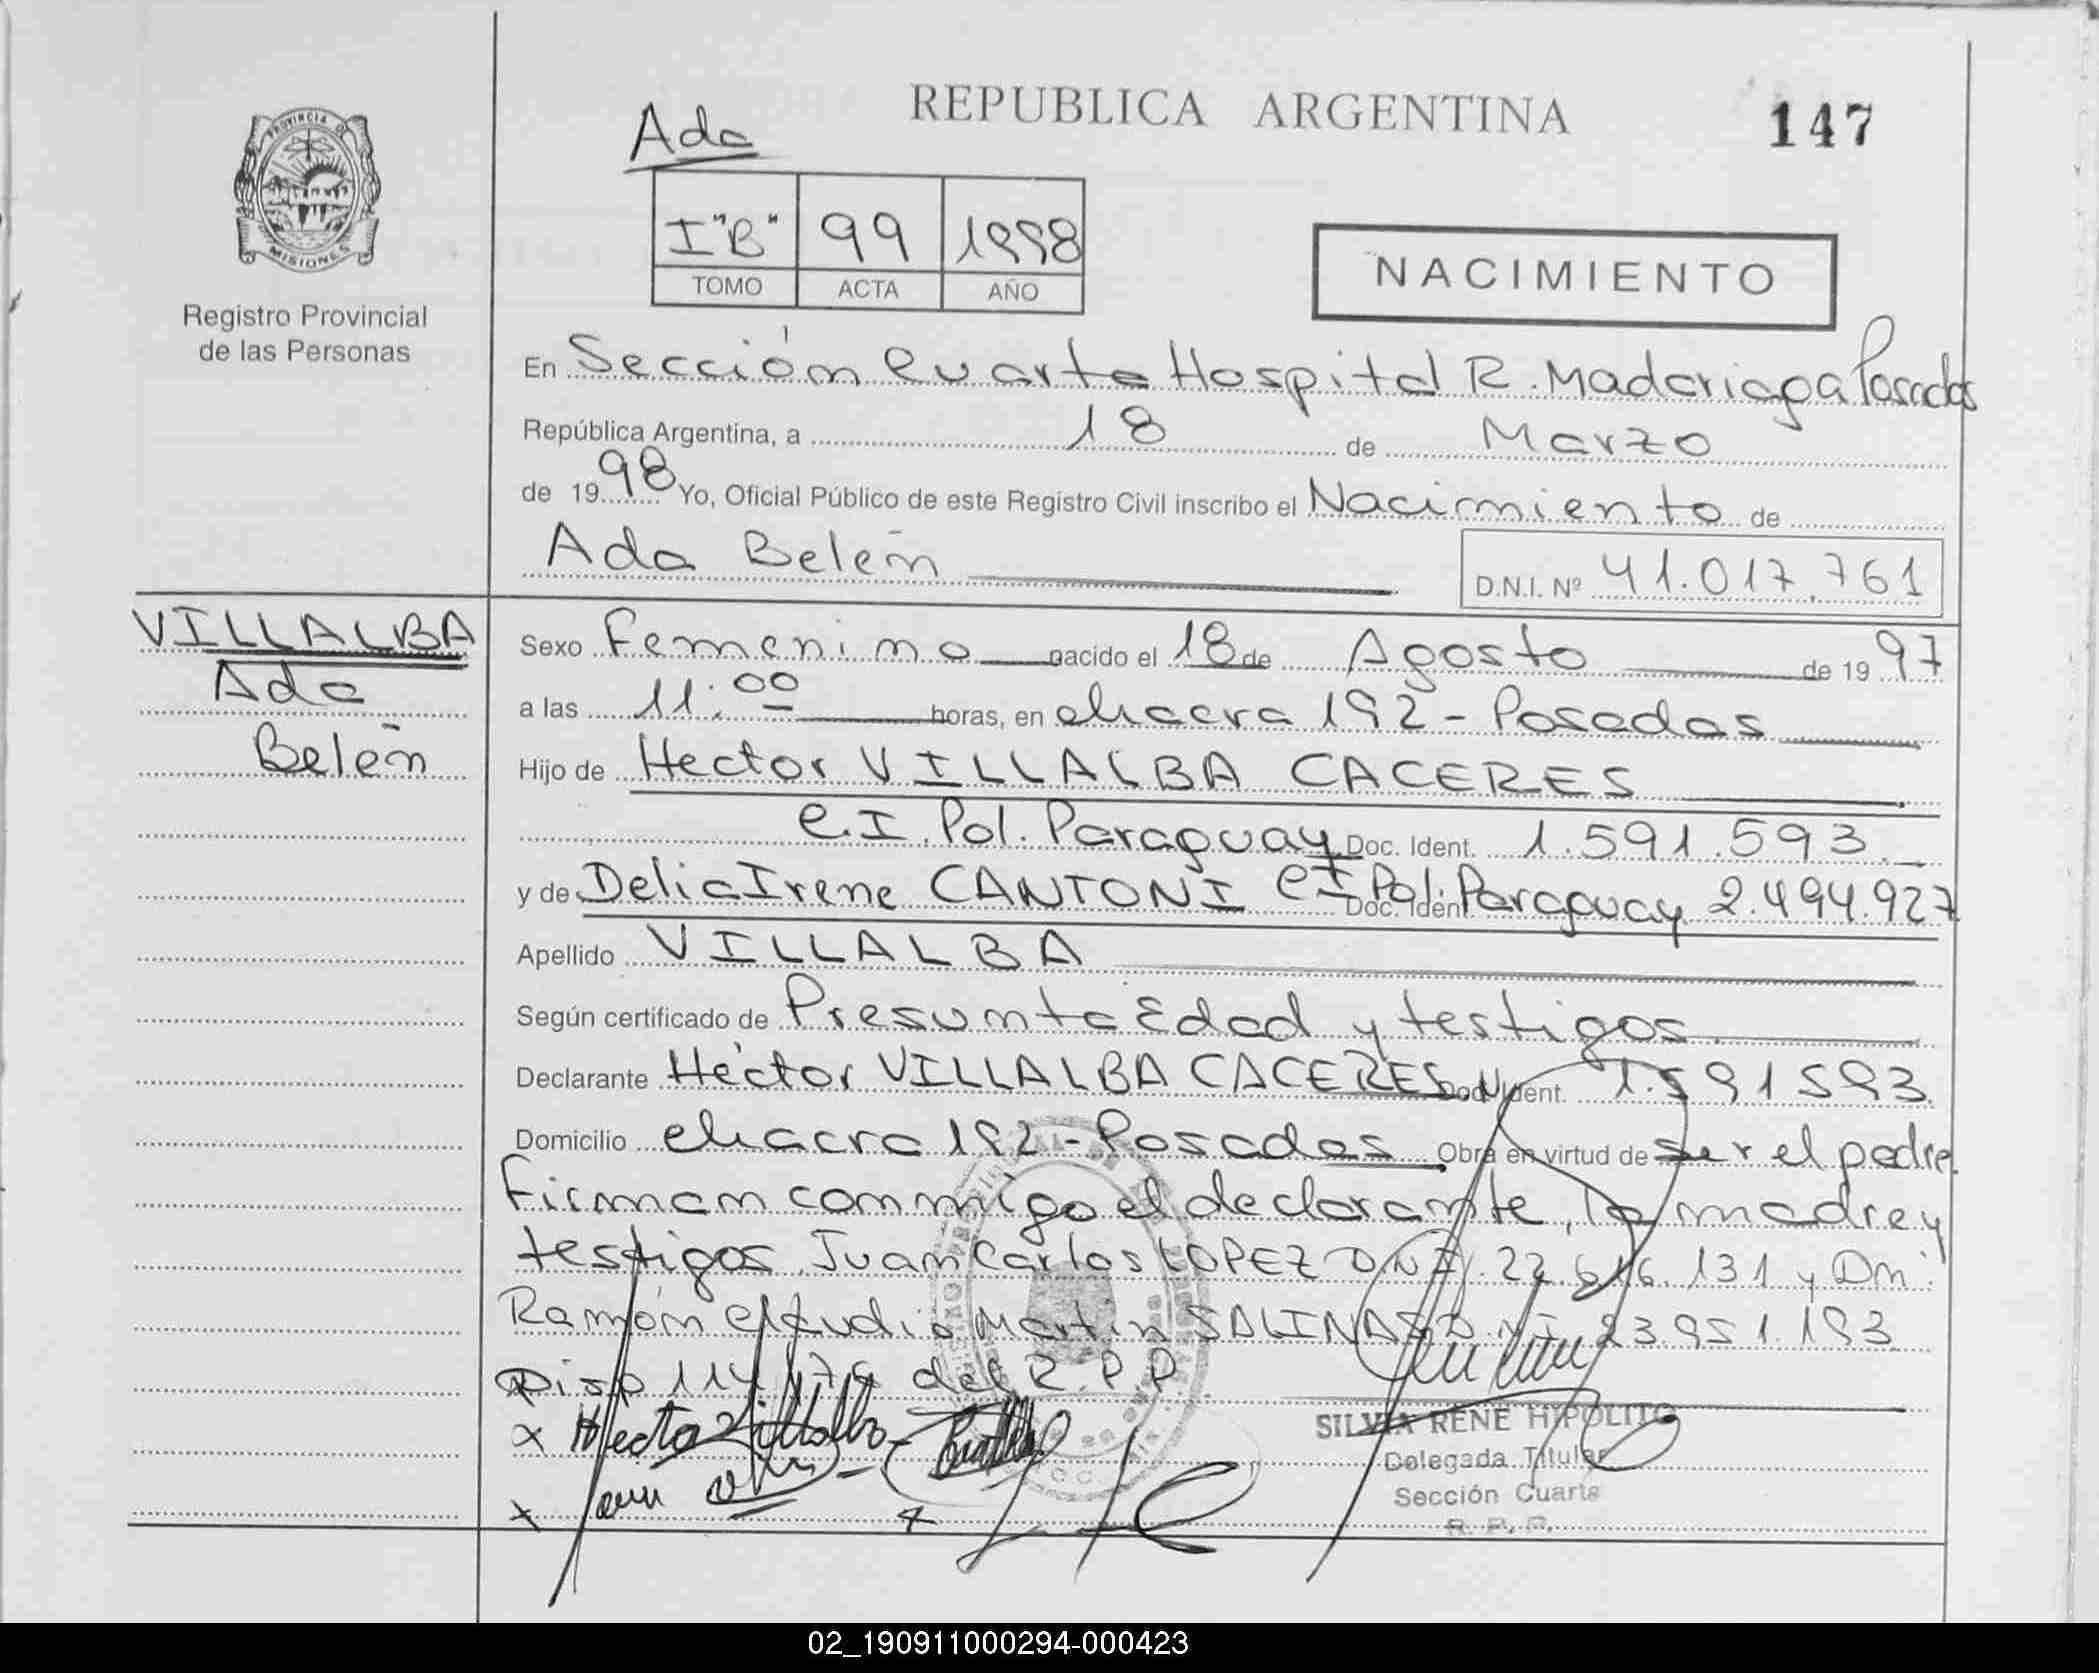 REPUBLICA ARGENTINA
147
Ada
I "B" 99 1998
TOMO ACTA AÑO
NACIMIENTO
PROVINCIA DE MISIONES
Registro Provincial
de las Personas
En Sección Cuarta Hospital R. Madariaga Posadas
República Argentina, a 18 de Marzo
de 1998 Yo, Oficial Público de este Registro Civil inscribo el Nacimiento de
Ada Belén D.N.I. Nº 41.017.761
VILLALBA
Ada
Belén
Sexo Femenino nacido el 18 de Agosto de 1997
a las 11:00 horas, en chacra 192 - Posadas
Hijo de Hector VILLALBA CACERES
C.I. Pol. Paraguay Doc. Ident. 1.591.593
y de Delia Irene CANTONI CI Pol. Paraguay Doc. Ident. 2.494.927
Apellido VILLALBA
Según certificado de Presunta Edad y testigos
Declarante Héctor VILLALBA CACERES Doc. Ident. 1.591593
Domicilio chacra 192 - Posadas Obra en virtud de ser el padre.
Firman conmigo el declarante, la madre y
testigos Juan Carlos LOPEZ DNI. 22.616.131 y Dn.
Ramón Claudio Martin SALINAS D.N.I. 23.951.193
Disp 114/79 del R.P.P.
x Hector Villalba
SILVIA RENE HIPOLITO
Delegada Titular
Sección Cuarta
R. P. P.
02_190911000294-000423